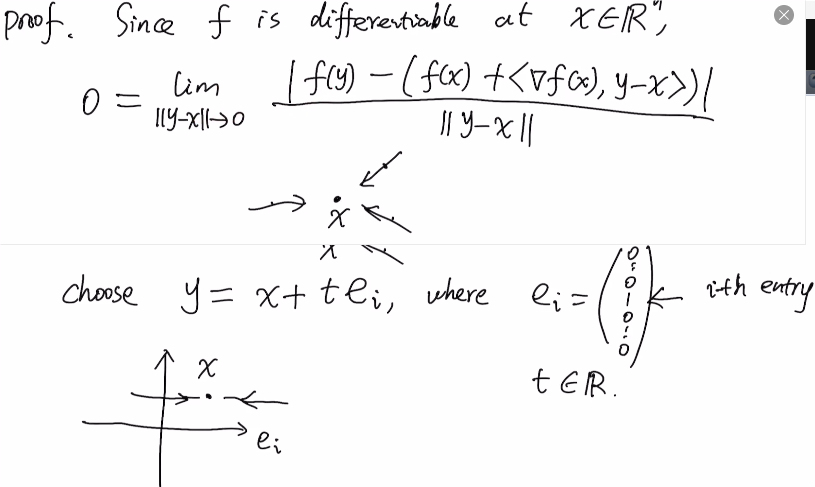 Proof. Since f is differentiable at x∈ℝⁿ,
0 = lim_{||y-x||→0} |f(y) - (f(x) + <∇f(x), y-x>)| / ||y-x||
x
x
choose y = x + te_i, where e_i = (0 ⋮ 0 1 0 ⋮ 0) ← i-th entry
x
t ∈ ℝ.
e_i